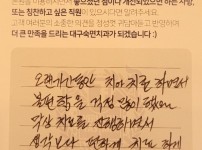 진료를 이용하시면서 좋았던 점이나 개선되었으면 하는 사항,
또는 칭찬하고 싶은 직원이 있으시다면 알려주세요.
고객 여러분의 소중한 의견을 정성껏 귀담아듣고 반영하여
더 큰 만족을 드리는 대구숙면치과가 되겠습니다 :)
오랜기간동안 치아 치료를 하면서
불편함을 걱정 많이 했는데
막상 치료를 진행하면서
생각보다 편하게 치료 하게